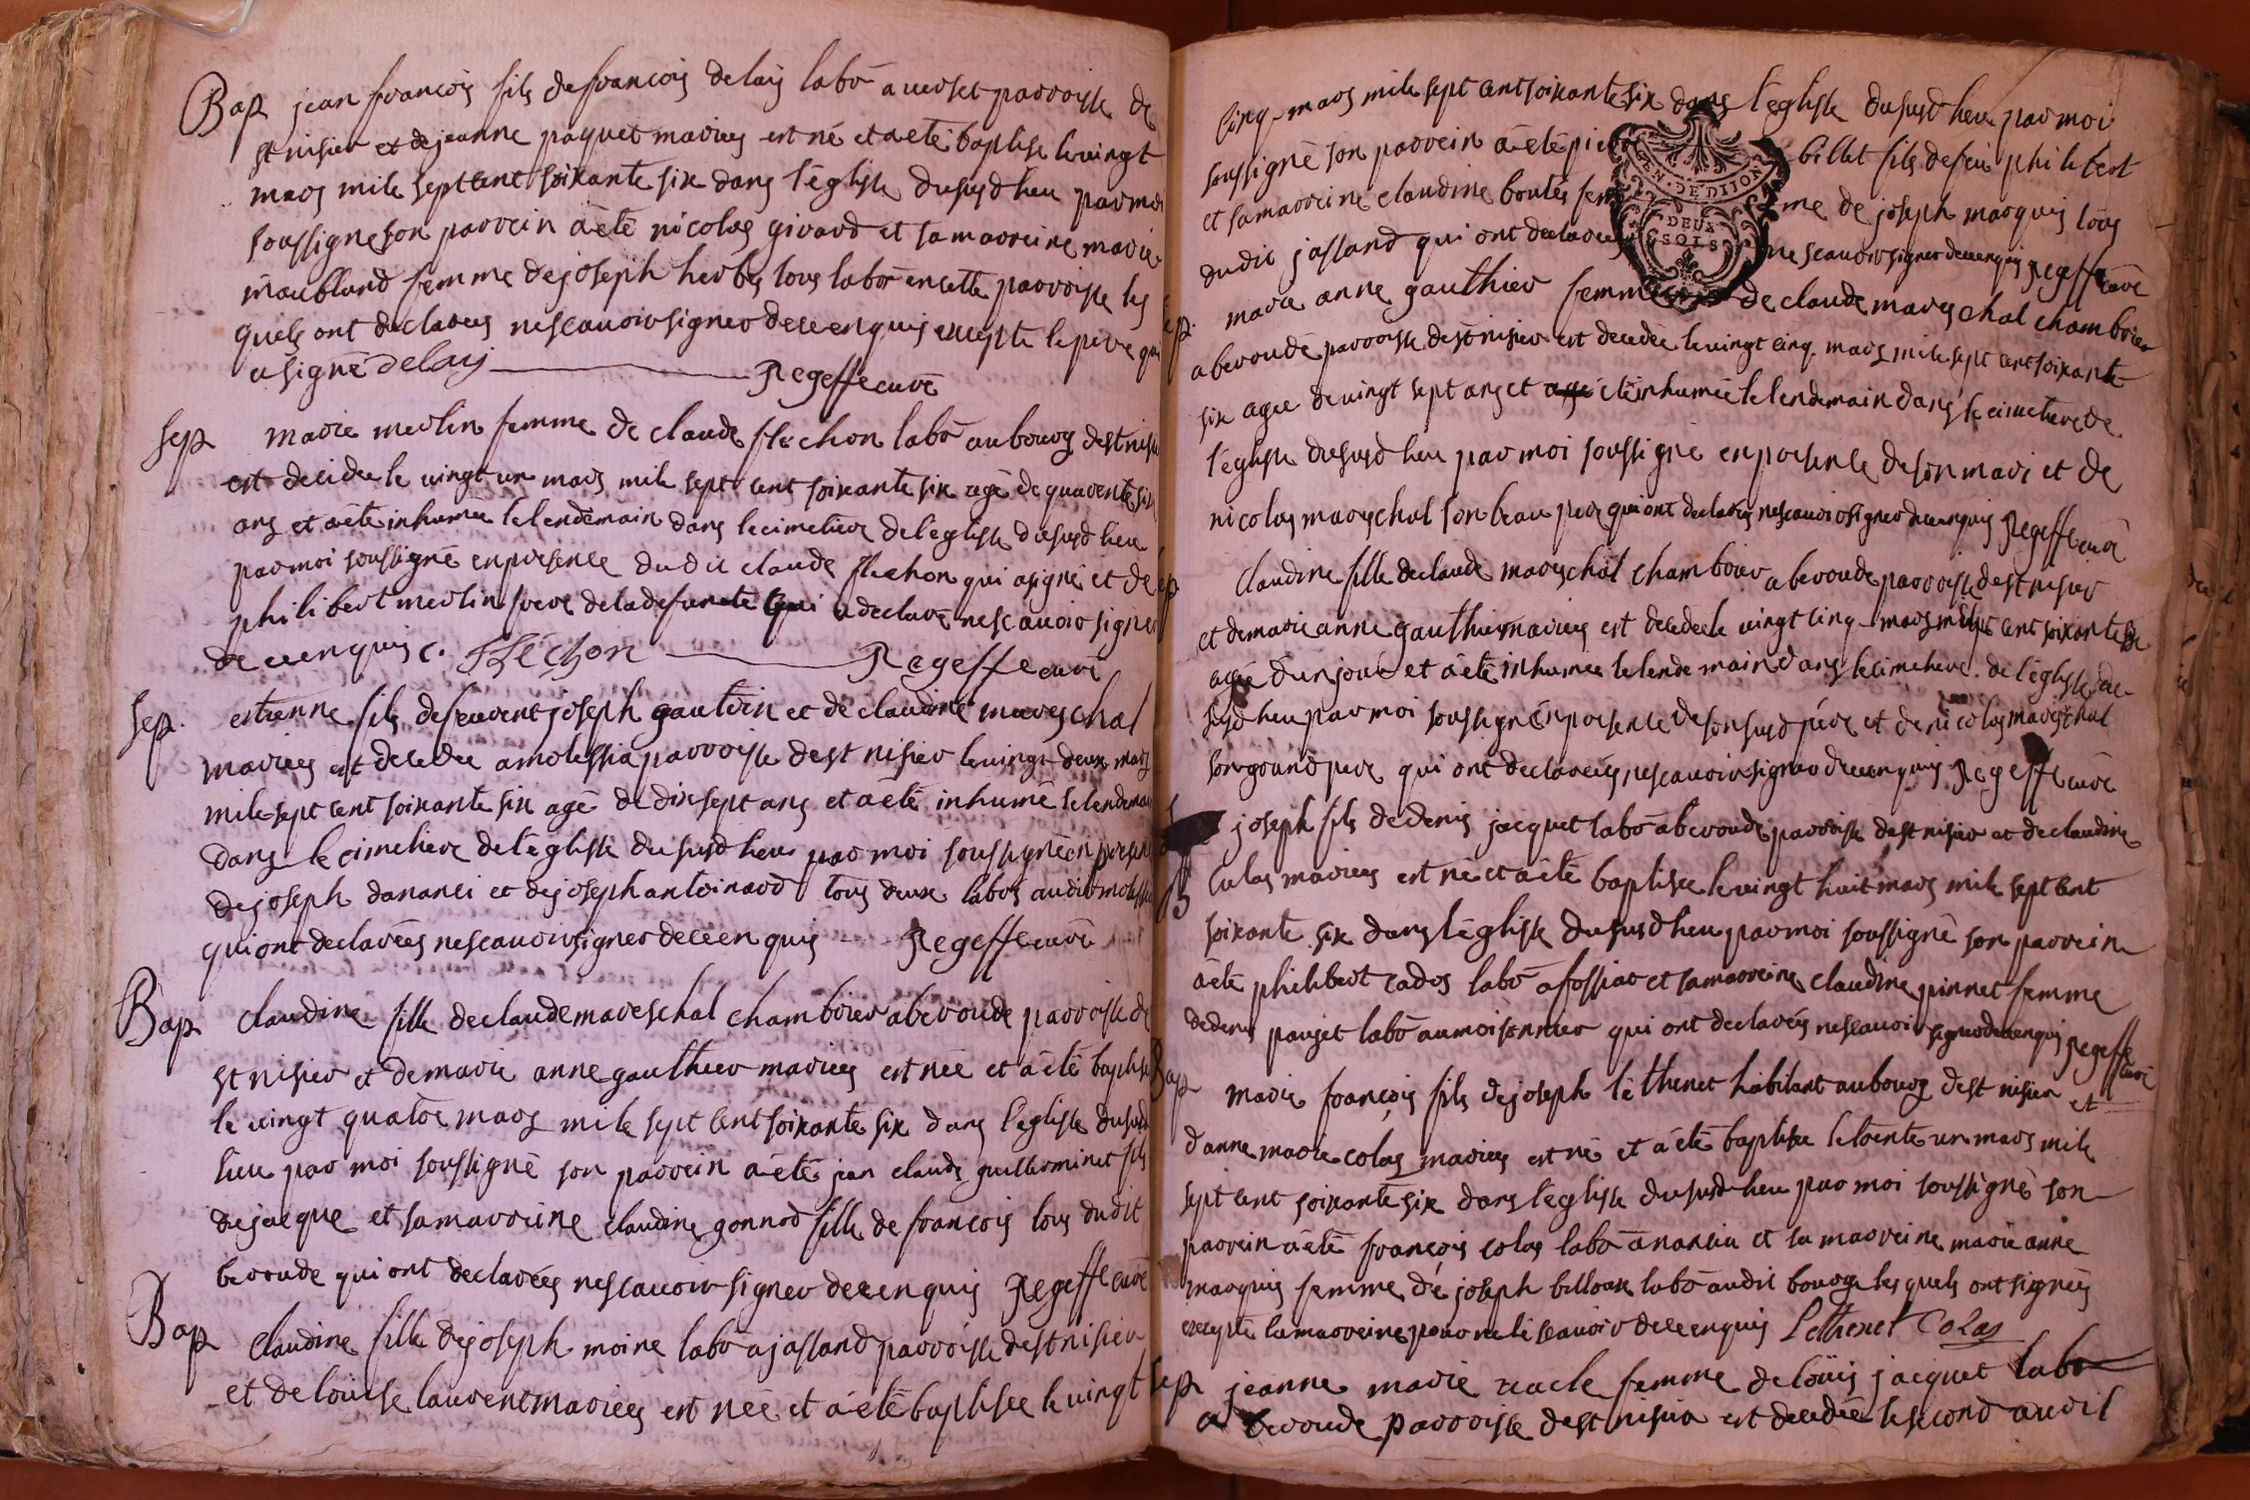 Bap jean francois fils de francois delay labo a verset parroisse de
st nisier et de jeanne paquet mariees est né et a eté baptisé le vingt
mars mile sept cent soixante six dans l'eglise du susd lieu par moi
soussigné son parrein a eté nicolas girard et sa marreine marie
maubland femme de joseph herbes tous labo en cette parroisse les
quels ont declarees ne scavoir signer de ce enquis excepté le pere qui
a signé delay Regeffe curé
Sep marie merlin femme de claude flechon labo au bourg de st nisier
est decidee le vingt un mars mile sept cent soixante six agé de quarente six
ans et a eté inhumee le lendemain dans le cimetiere de l'eglise du susd lieu
par moi soussigné en presence du dit claude flechon qui a signé et de
philibert merlin frere de la defunte qui a declaré ne scavoir signer
de ce enquis c. FLéchon Regeffe curé
Sep. estienne fils de feu vent joseph gautier et de claudine mareschal
mariees est decedee a molessia parroisse de st nisier le vingt deux mars
mile sept cent soixante six agé de dix sept ans et a eté inhumé le lendemain
dans le cimetiere de l'eglise du susd lieu par moi soussigné en presence
de joseph dananci et de joseph antoinard tous deux labos au dit molessia
qui ont declarées ne scavoir signer de ce enquis Regeffe curé
Bap claudine fille de claude mareschal chambrier a beroude parroisse de
st nisier et de marie anne gauthier mariees est née et a eté baptisé
le vingt quatre mars mile sept cent soixante six dans l'eglise du susd
lieu par moi soussigné son parrein a eté jean claude guillerminet fils
de jacque et sa marreine claudine gonnod fille de francois tous du dit
beroude qui ont declarées ne scavoir signer de ce enquis Regeffe curé
Bap claudine fille de joseph moine labo a jassand parroisse de st nisier
et de louise laurent mariees est née et a eté baptisee le vingt
cinq mars mile sept cent soixante six dans l'eglise du susd lieu par moi
soussigné son parrein a eté pierre billet fils de feu philibert
et sa marreine claudine boutes femme de joseph marquis tous
GEN. DE DIJON
DEUX
SOLS
du dit jassand qui ont declarees ne scavoir signer de ce enquis Regeffe curé
Sep. marie anne gauthier femme de claude mareschal chambrier
a beroude parroisse de st nisier est decedée le vingt cinq mars mile sept cent soixante
six agee de vingt sept ans et a eté inhumée le lendemain dans le cimetiere de
l'eglise du susd lieu par moi soussigné en presence de son mari et de
nicolas mareschal son beau pere qui ont declarés ne scavoir signer de ce enquis Regeffe curé
Sep claudine fille de claude mareschal chambrier a beroude parroisse de st nisier
et de marie anne gauthier mariees est decedee le vingt cinq mars mil sept cent soixante six
agée d'un jour et a eté inhumee le lendemain dans le cimetiere de l'eglise du
susd lieu par moi soussigné en presence de son susd pére et de nicolas mareschal
son grand pere qui ont declarées ne scavoir signer de ce enquis Regeffe curé
B joseph fils de denis jacquet labo a beroude parroisse de st nisier et de claudine
culas mariees est né et a eté baptisee le vingt huit mars mile sept cent
soixante six dans l'eglise du susd lieu par moi soussigné son parrein
a eté philibert cados labo a fossiat et sa marreine claudine pinnet femme
de denis pauget labo au moisonnier qui ont declarées ne scavoir signer de ce enquis Regeffe curé
Bap marie françois fils de joseph léthenet habitant au bourg de st nisier et
d'anne marie colas mariees est né et a eté baptisee le trente un mars mile
sept cent soixante six dans l'eglise du susd lieu par moi soussigné son
parrein a eté françois colas labo a nancia et sa marreine marie anne
marquis femme de joseph billoux labo au dit bourg les quels ont signées
excepté la marreine pour ne le scavoir de ce enquis Lethenet Colas
Sep jeanne marie reacle femme de loüis jacquet labo
a beroude parroisse de st nisier est decedée le second avril